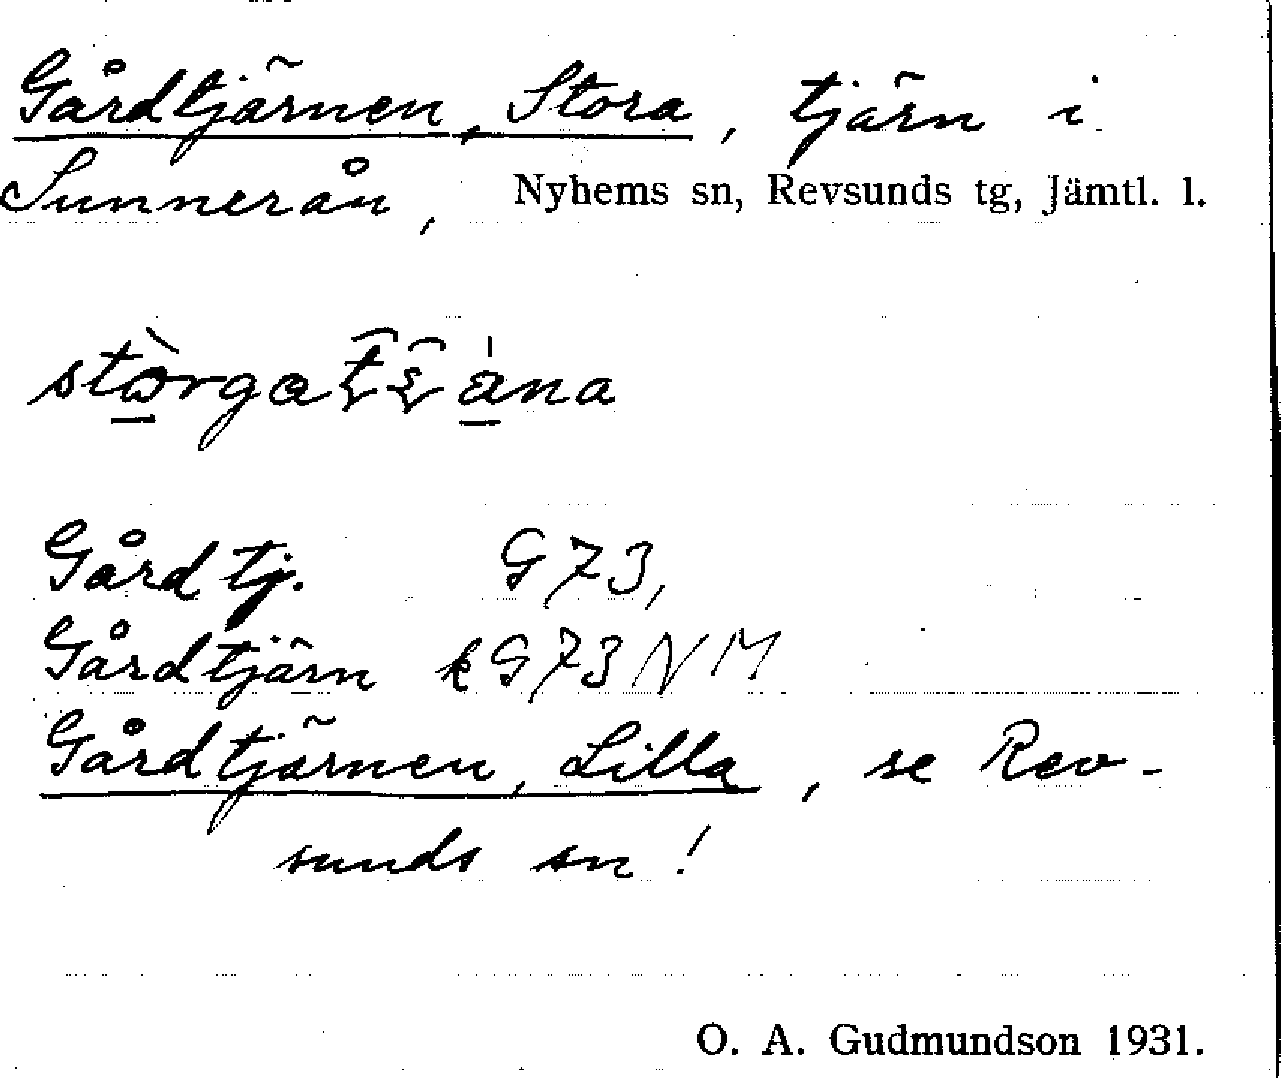 Gårdtjärnen, Stora, tjärn i
Sunnerån, Nyhems sn, Revsunds tg, Jämtl. l.
Gårdtj. G73,
Gårdtjärn kG73NM
Gårdtjärnen, Lilla, se Rev-
sunds sn!
O. A. Gudmundson 1931.